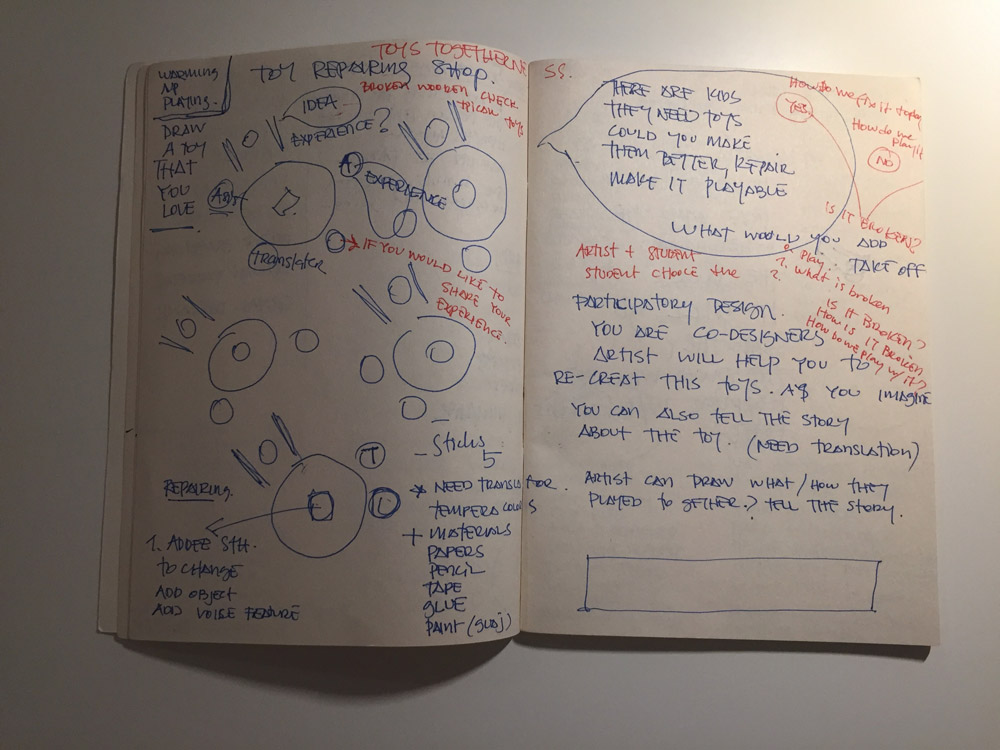 TOYS TOGETHER
TOY REPAIRING SHOP.
BROKEN WOODEN CHECK
TOYS
WARMING
UP
PLAYING.
DRAW
A TOY
THAT
YOU
LOVE
IDEA
EXPERIENCE?
A
EXPERIENCE
Artist
translater
IF YOU WOULD LIKE TO
SHARE YOUR
EXPERIENCE.
Sticks
5
T
REPAIRING.
1. ADDEE STH.
TO CHANGE
ADD OBJECT
ADD VOICE FEATURE
* NEED TRANSLATOR.
TEMPERA COLORS
+ MATERIALS
PAPERS
PENCIL
TAPE
GLUE
PAINT (GUAJ)
SS.
THERE ARE KIDS
THEY NEED TOYS
COULD YOU MAKE
THEM BETTER, REPAIR
MAKE IT PLAYABLE
How do we fix it
YES
How do we
play it
NO
IS IT BROKEN?
WHAT WOULD YOU ADD
TAKE OFF
ARTIST + STUDENT
STUDENT CHOICE the
0. Play
1. What is broken
2.
IS IT BROKEN?
HOW IS IT BROKEN
How do we play w/ it?
PARTICIPATORY DESIGN.
YOU ARE CO-DESIGNERS
ARTIST WILL HELP YOU TO
RE-CREAT THIS TOYS. AS YOU IMAGINE
YOU CAN ALSO TELL THE STORY
ABOUT THE TOY. (NEED TRANSLATION)
ARTIST CAN DRAW WHAT/HOW THEY
PLAYED TO GETHER.> TELL THE STORY.